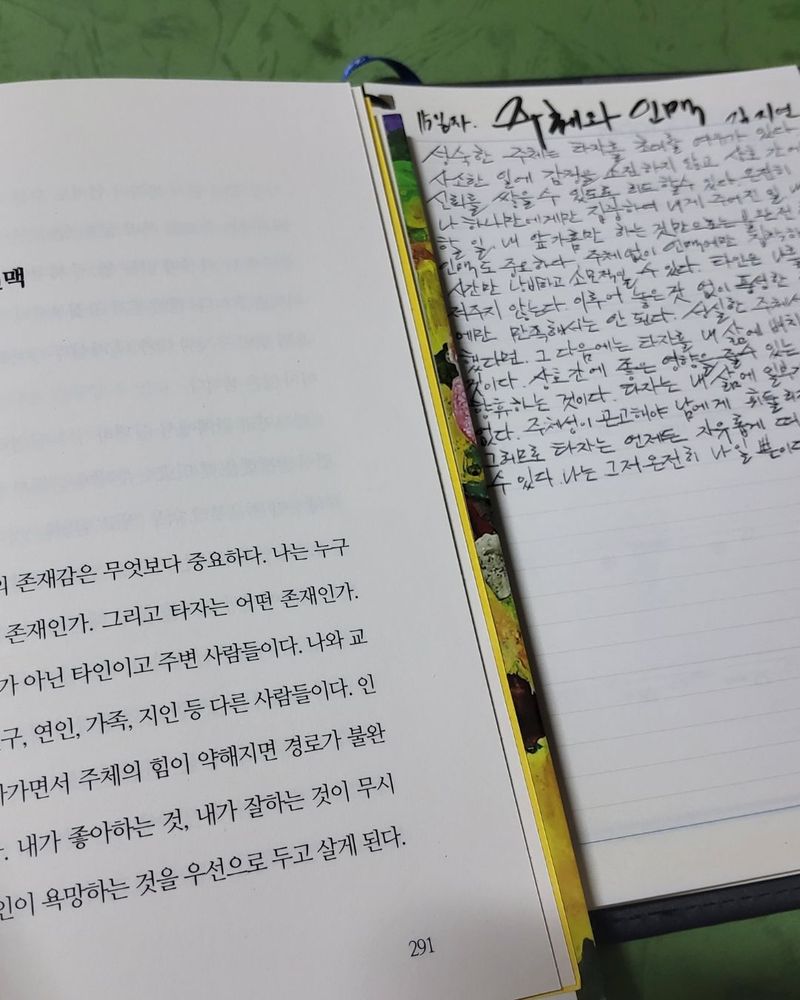 인맥
의 존재감은 무엇보다 중요하다. 나는 누구
존재인가. 그리고 타자는 어떤 존재인가.
가 아닌 타인이고 주변 사람들이다. 나와 교
구, 연인, 가족, 지인 등 다른 사람들이다. 인
가면서 주체의 힘이 약해지면 경로가 불완
. 내가 좋아하는 것, 내가 잘하는 것이 무시
인이 욕망하는 것을 우선으로 두고 살게 된다.
291
115일차. 주체와 인맥 김지연
성숙한 주체는 타자를 초대할 여유가 있다.
사소한 일에 감정을 소진하지 않고 상호 간에
신뢰를 쌓을 수 있도록 리드할 수 있다. 온전히
나 하나만에게만 집중하여 내게 주어진 일, 내
할 일, 내 앞가림만 하는 것만으로는
인맥도 중요하다. 주체 없이 인맥에만 집착하
시간만 낭비하고 소모적일 수 있다. 타인은 나를
져주지 않는다. 이루어 놓은 것 없이 풍성한
에만 만족해서는 안 된다. 성실한 주체
했다면, 그 다음에는 타자를 내 삶에 배치
것이다. 상호간에 좋은 영향을 줄 수 있는
향유하는 것이다. 타자는 내 삶에 일부
없다. 주체성이 견고해야 남에게 휘둘리
그러므로 타자는 언제든 자유롭게 떠
수 있다. 나는 그저 온전히 나일 뿐이다